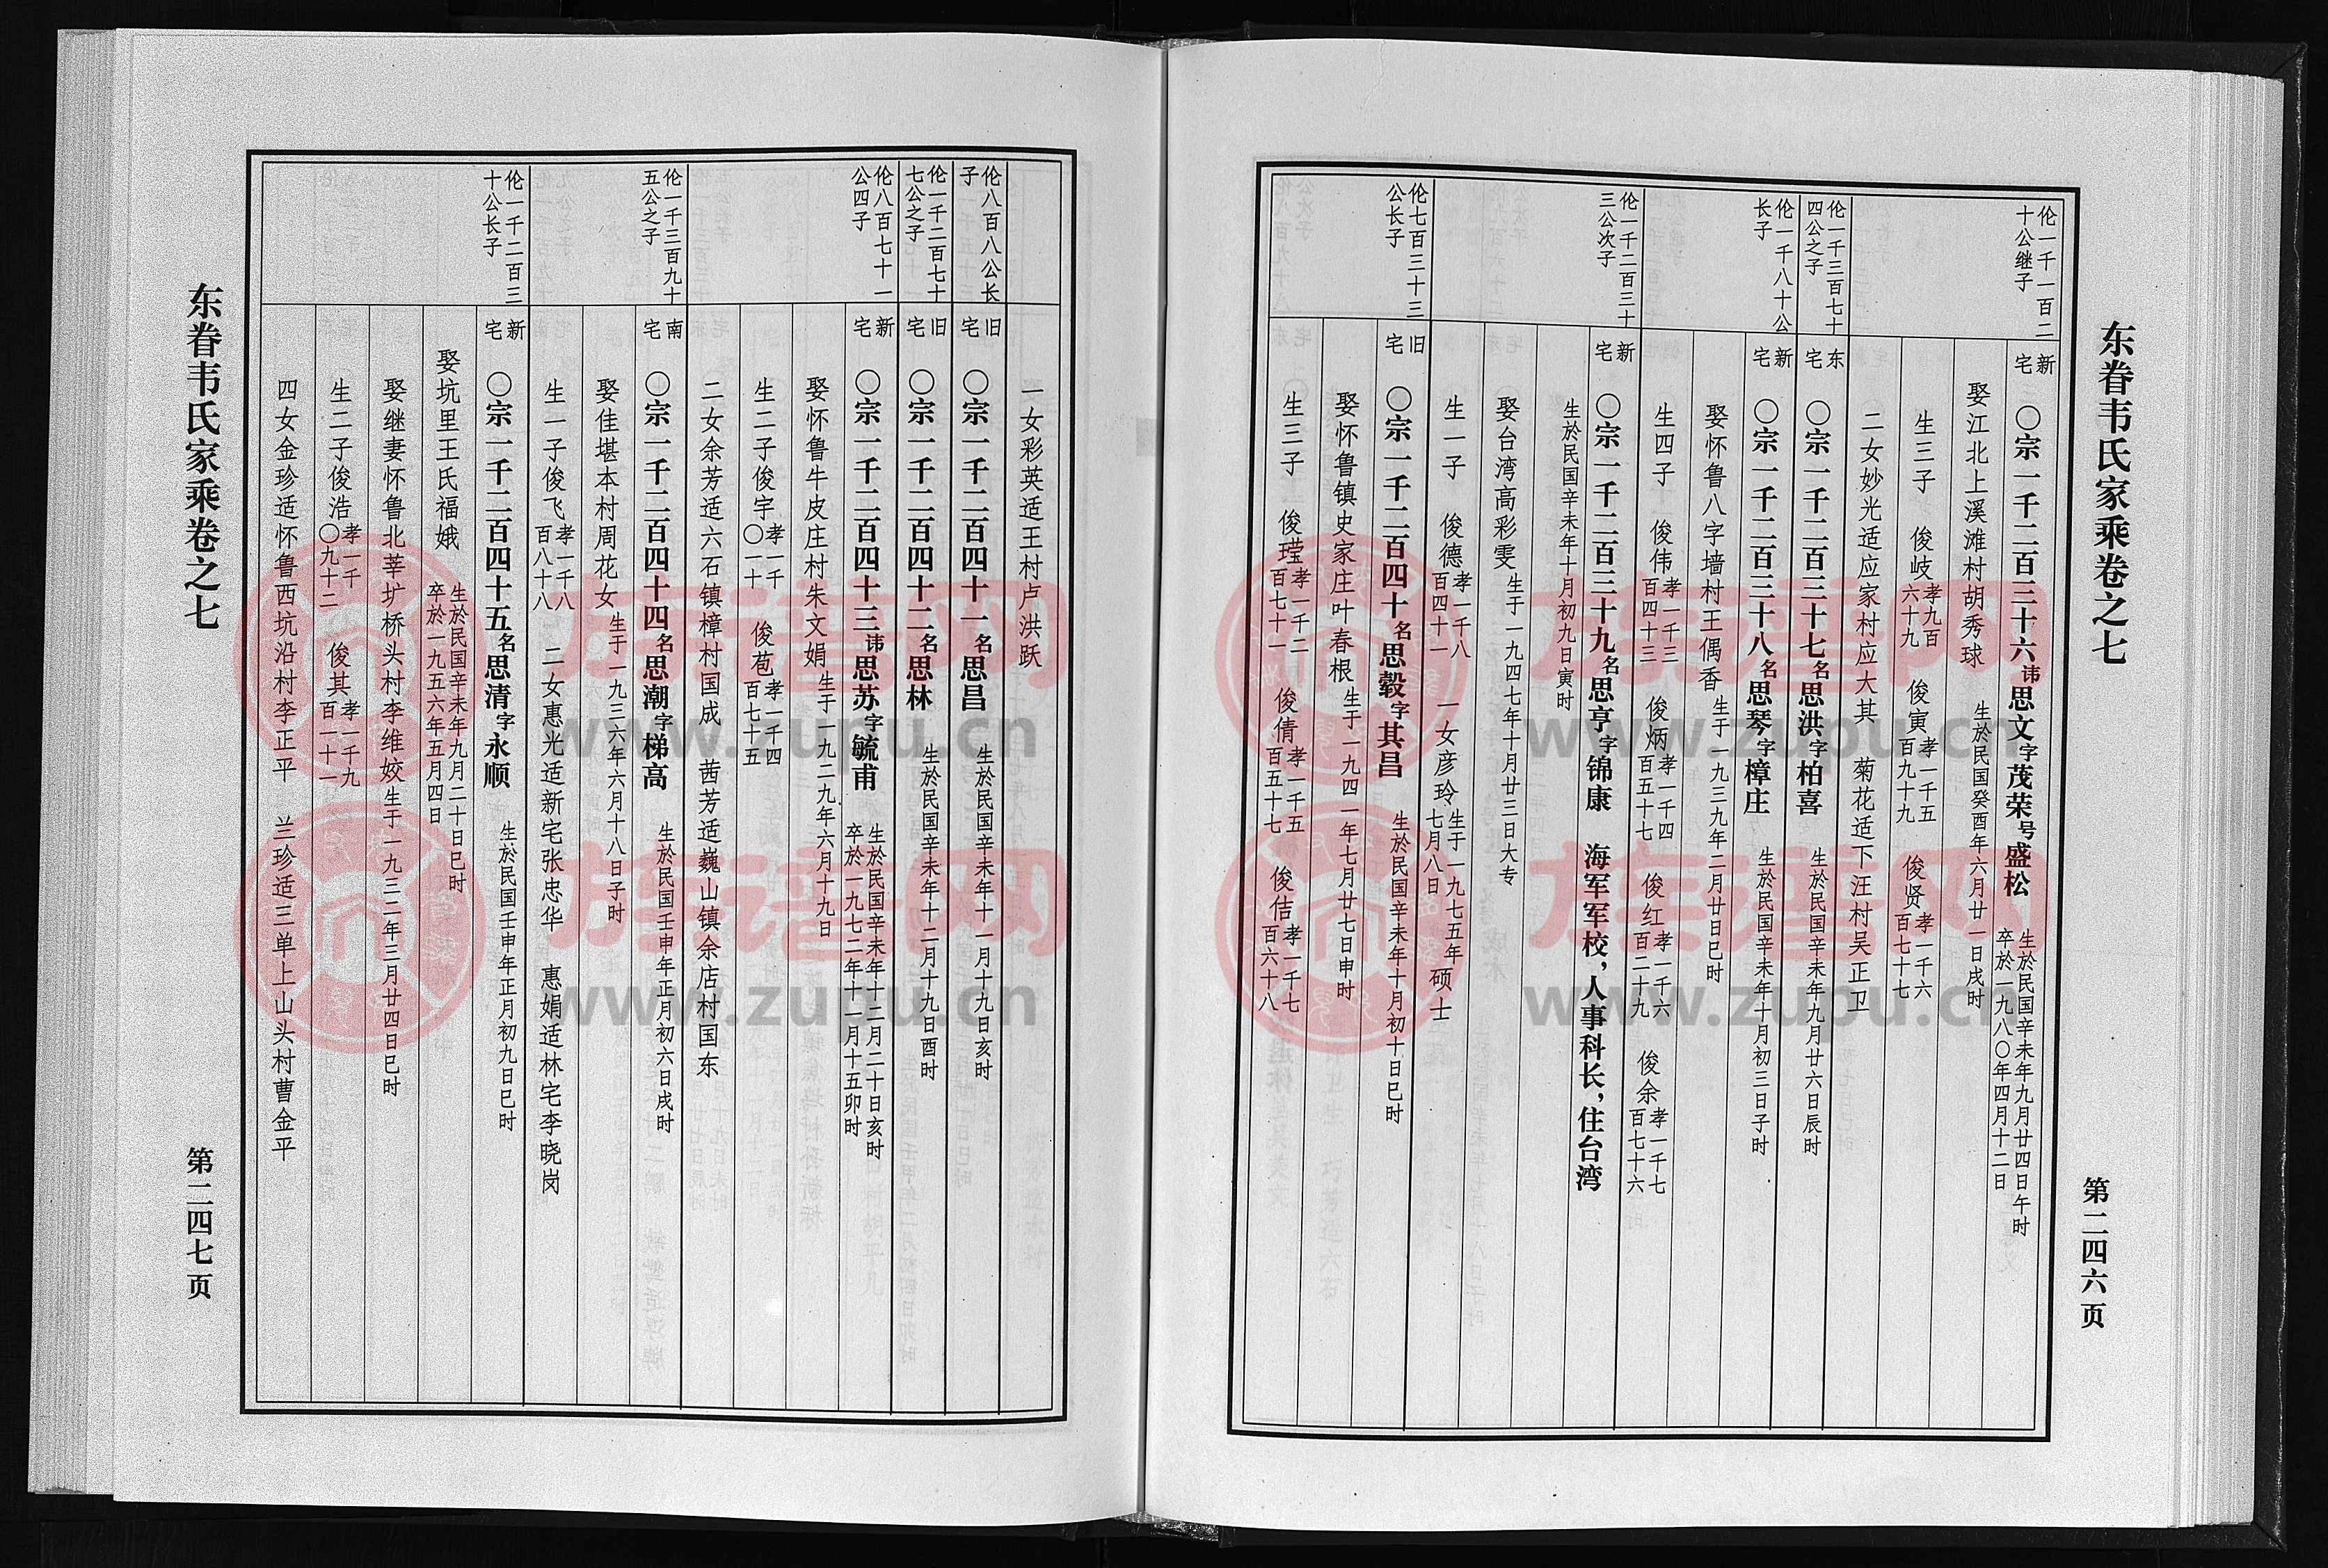 东眷韦氏家乘卷之七
第二四六页
伦一千一百二
十公继子
新宅
〇宗一千二百三十六讳思文字茂荣号盛松
生於民国辛未年九月廿四日午时
卒於一九八〇年四月十二日
娶江北上溪滩村胡秀球
生於民国癸酉年六月廿一日戌时
生三子 俊岐孝九百六十九 俊寅孝一千五百九十九 俊贤孝一千六百七十七
二女妙光适应家村应大其 菊花适下汪村吴正卫
伦一千三百七十
四公之子
东宅
〇宗一千二百三十七名思洪字柏喜
生於民国辛未年九月廿六日辰时
伦一千八十公
长子
新宅
〇宗一千二百三十八名思琴字樟庄
生於民国辛未年十月初三日子时
娶怀鲁八字墙村王偶香
生于一九三九年二月廿日巳时
生四子 俊伟孝一千三百四十三 俊炳孝一千四百五十七 俊红孝一千六百二十九 俊余孝一千七百七十六
伦一千二百三十
三公次子
新宅
〇宗一千二百三十九名思亨字锦康 海军军校，人事科长，住台湾
生於民国辛未年十月初九日寅时
娶台湾高彩雯
生于一九四七年十月廿三日大专
生一子 俊德孝一千八百四十一 一女彦玲生于一九七五年七月八日 硕士
伦七百三十三
公长子
旧宅
〇宗一千二百四十名思毂字其昌
生於民国辛未年十月初十日巳时
娶怀鲁镇史家庄叶春根
生于一九四一年七月廿七日申时
生三子 俊瑩孝一千二百七十一 俊倩孝一千五百五十七 俊佶孝一千七百六十八
东眷韦氏家乘卷之七
第二四七页
一女彩英适王村卢洪跃
伦八百八公长
子
旧宅
〇宗一千二百四十一名思昌
生於民国辛未年十一月十九日亥时
伦一千二百七十
七公之子
旧宅
〇宗一千二百四十二名思林
生於民国辛未年十二月十九日酉时
伦八百七十一
公四子
新宅
〇宗一千二百四十三讳思苏字毓甫
生於民国辛未年十二月二十日亥时
卒於一九七二年十一月十五卯时
娶怀鲁牛皮庄村朱文娟
生于一九二九年六月十九日
生二子俊宇孝一千〇一十 俊苞孝一千四百七十五
二女余芳适六石镇樟村国成 茜芳适巍山镇余店村国东
伦一千三百九十
五公之子
南宅
〇宗一千二百四十四名思潮字梯高
生於民国壬申年正月初六日戌时
娶佳堪本村周花女
生于一九三六年六月十八日子时
生一子俊飞孝一千八百八十八 二女惠光适新宅张忠华 惠娟适林宅李晓岗
伦一千二百三
十公长子
新宅
〇宗一千二百四十五名思清字永顺
生於民国壬申年正月初九日巳时
娶坑里王氏福娥
生於民国辛未年九月二十日巳时
卒於一九五六年五月四日
娶继妻怀鲁北莘圹桥头村李维姣
生于一九三二年三月廿四日巳时
生二子俊浩孝一千〇九十二 俊其孝一千九百一十一
四女金珍适怀鲁西坑沿村李正平 兰珍适三单上山头村曹金平
族谱网
www.zupu.cn
族谱网
www.zupu.cn
族谱网
www.zupu.cn
族谱网
www.zupu.cn